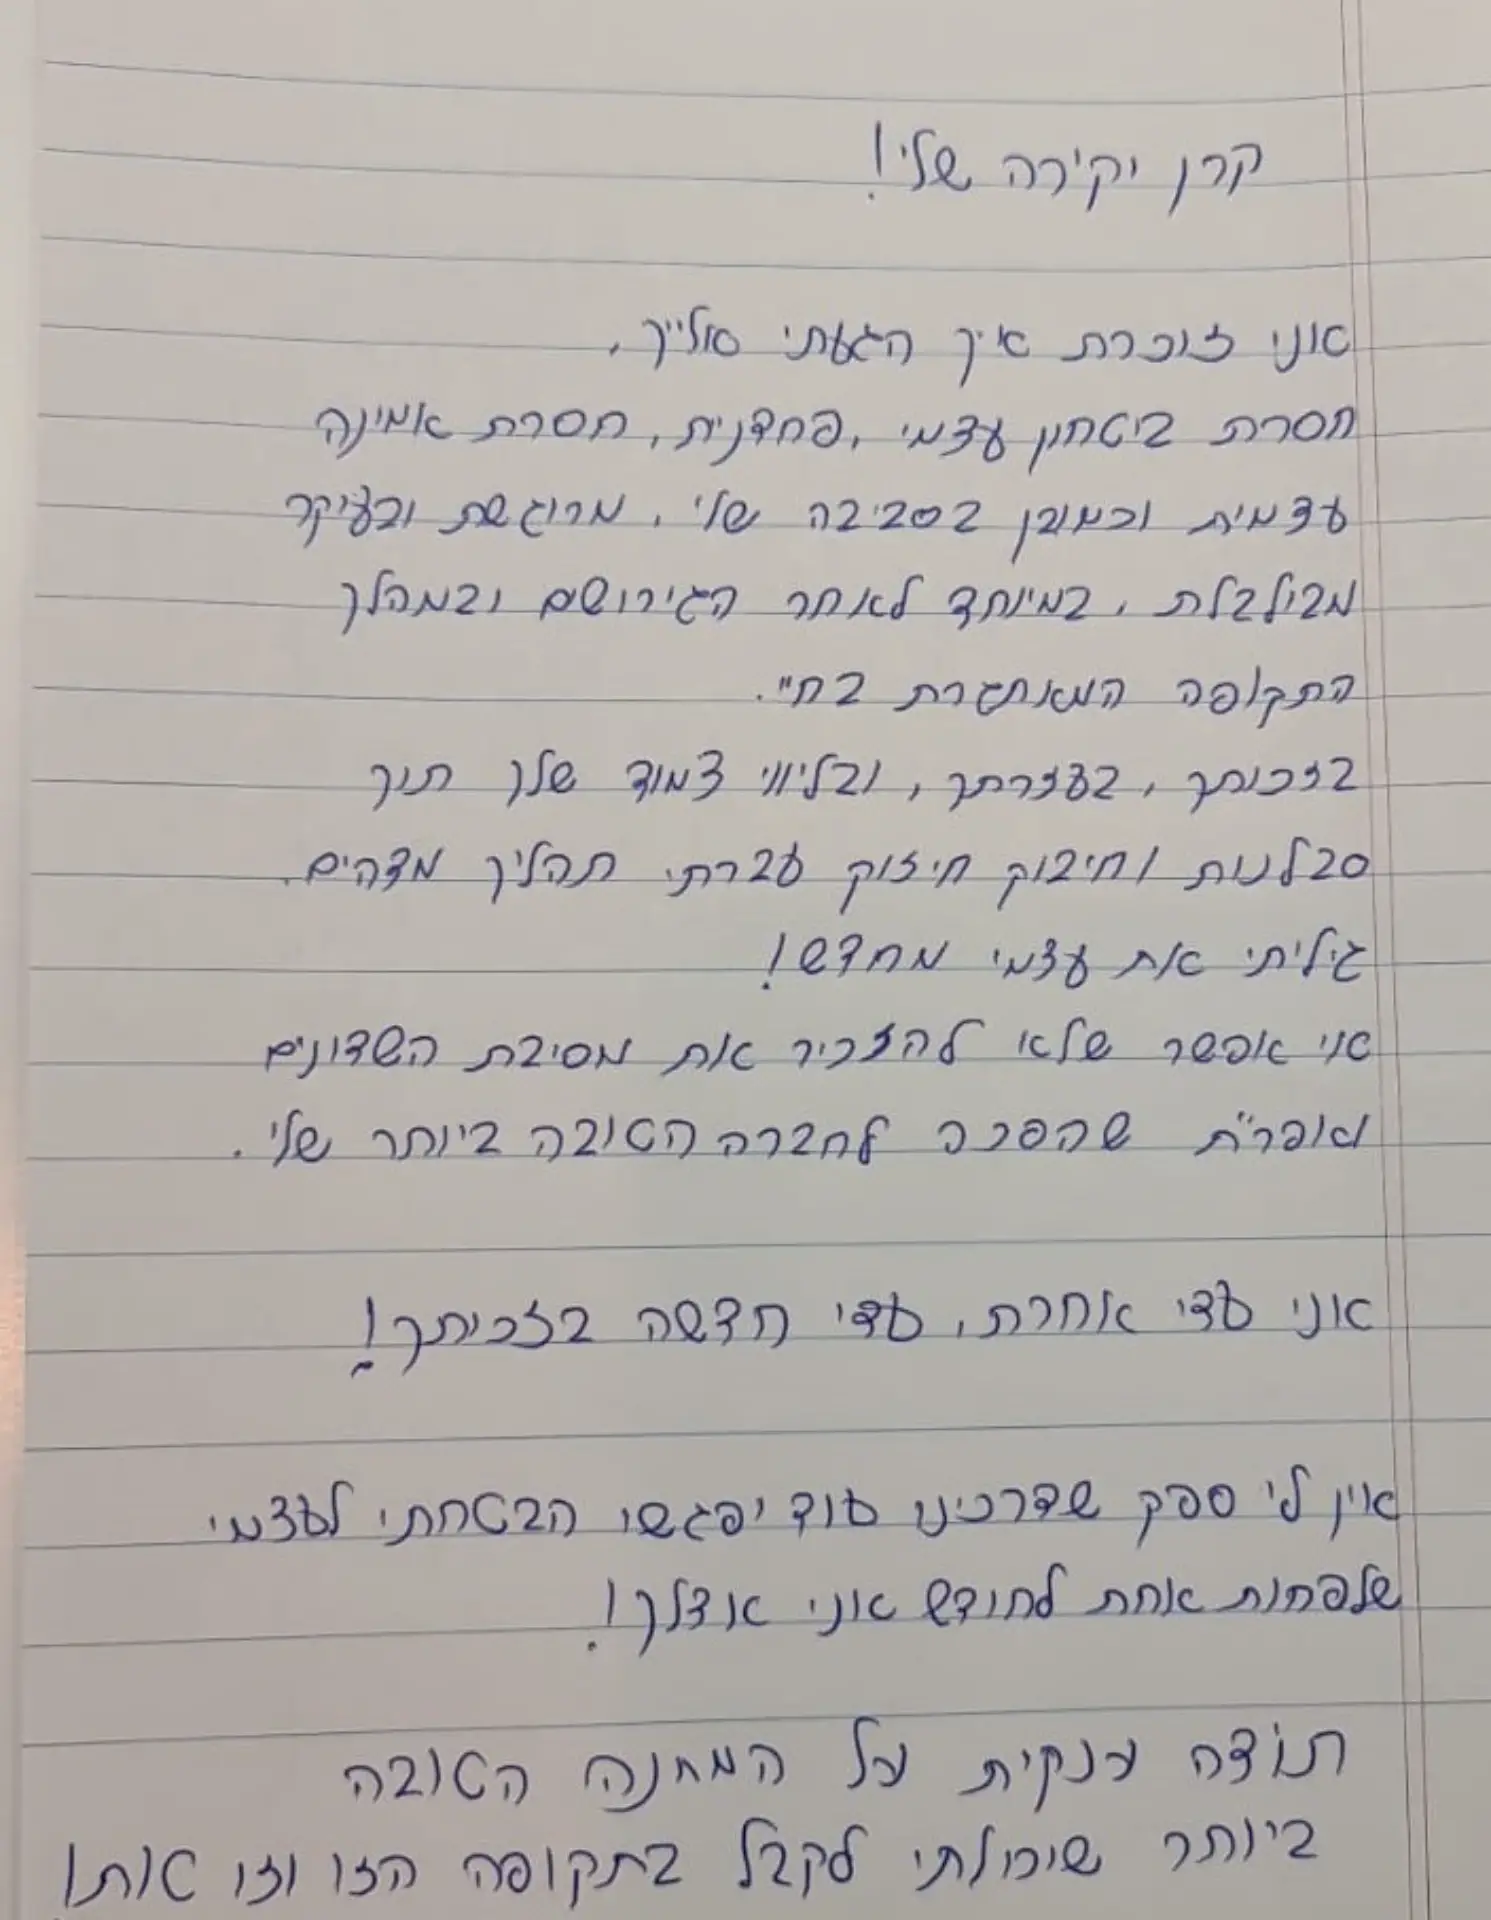 קרן יקירה שלי!
אני זוכרת איך הגעתי אלייך,
חסרת ביטחון עצמי, פחדנית, חסרת אמינה
עצמית וכמובן בסביבה שלי, מרוגשת ובעיקר
מבולבלת, במיוחד לאחר הגירושים ובמהלך
התקופה המאתגרת בח"י.
בזכותך, בעזרתך, ובליווי צמוד שלך תוך
סבלנות וחיבוק חיזוק עברתי תהליך מדהים.
גיליתי את עצמי מחדש!
אי אפשר שלא להזכיר את מסיבת השדונים
שהפכה לחברה הטובה ביותר שלי.
אני עדי אחרת, עדי חדשה בזכיתך!
אין לי ספק שדרכינו עוד יפגשו הבטחתי לעצמי
שלפחות אחת לחודש אני אצלך!
תודה ענקית על המתנה הטובה
ביותר שיכולתי לקבל בתקופה הזו וזו אותי